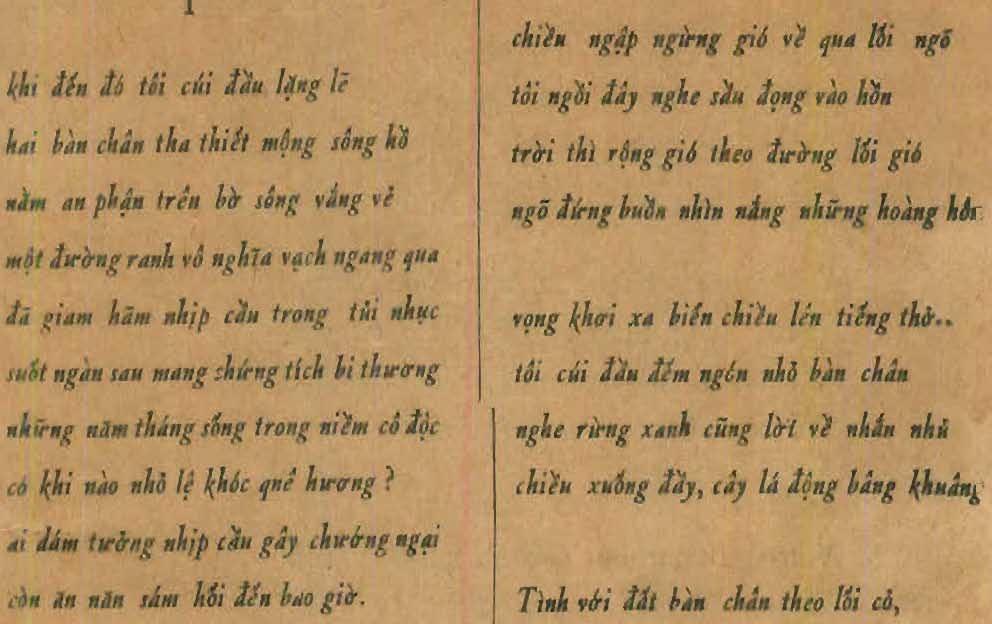 I
khi đến đó tôi cúi đầu lặng lẽ
hai bàn chân tha thiết mộng sông hồ
nằm an phận trên bờ sông vắng vẻ
một đường ranh vô nghĩa vạch ngang qua
đã giam hãm nhịp cầu trong tủi nhục
suốt ngàn sau mang chứng tích bi thương
những năm tháng sống trong niềm cô độc
có khi nào nhỏ lệ khóc quê hương ?
ai dám tưởng nhịp cầu gây chướng ngại
còn ăn năn sám hối đến bao giờ.
chiều ngập ngừng gió về qua lối ngõ
tôi ngồi đây nghe sầu đọng vào hồn
trời thì rộng gió theo đường lối gió
ngõ đứng buồn nhìn nắng những hoàng hôn
vọng khơi xa biển chiều lên tiếng thở..
tôi cúi đầu đếm ngón nhỏ bàn chân
nghe rừng xanh cũng lời về nhắn nhủ
chiều xuống đầy, cây lá động bâng khuâng
Tình với đất bàn chân theo lối cỏ,